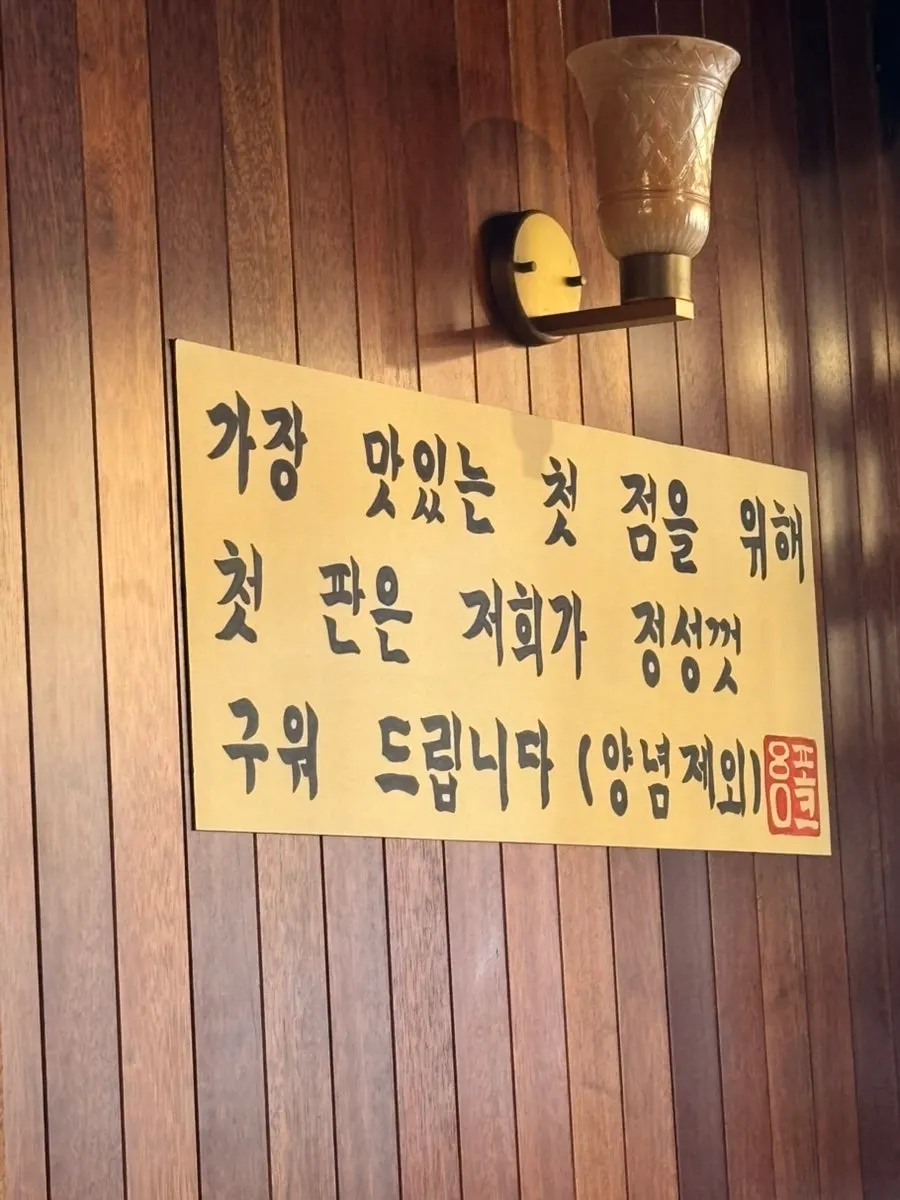 가장 맛있는 첫 점을 위해
첫 판은 저희가 정성껏
구워 드립니다 (양념제외)
웅포크